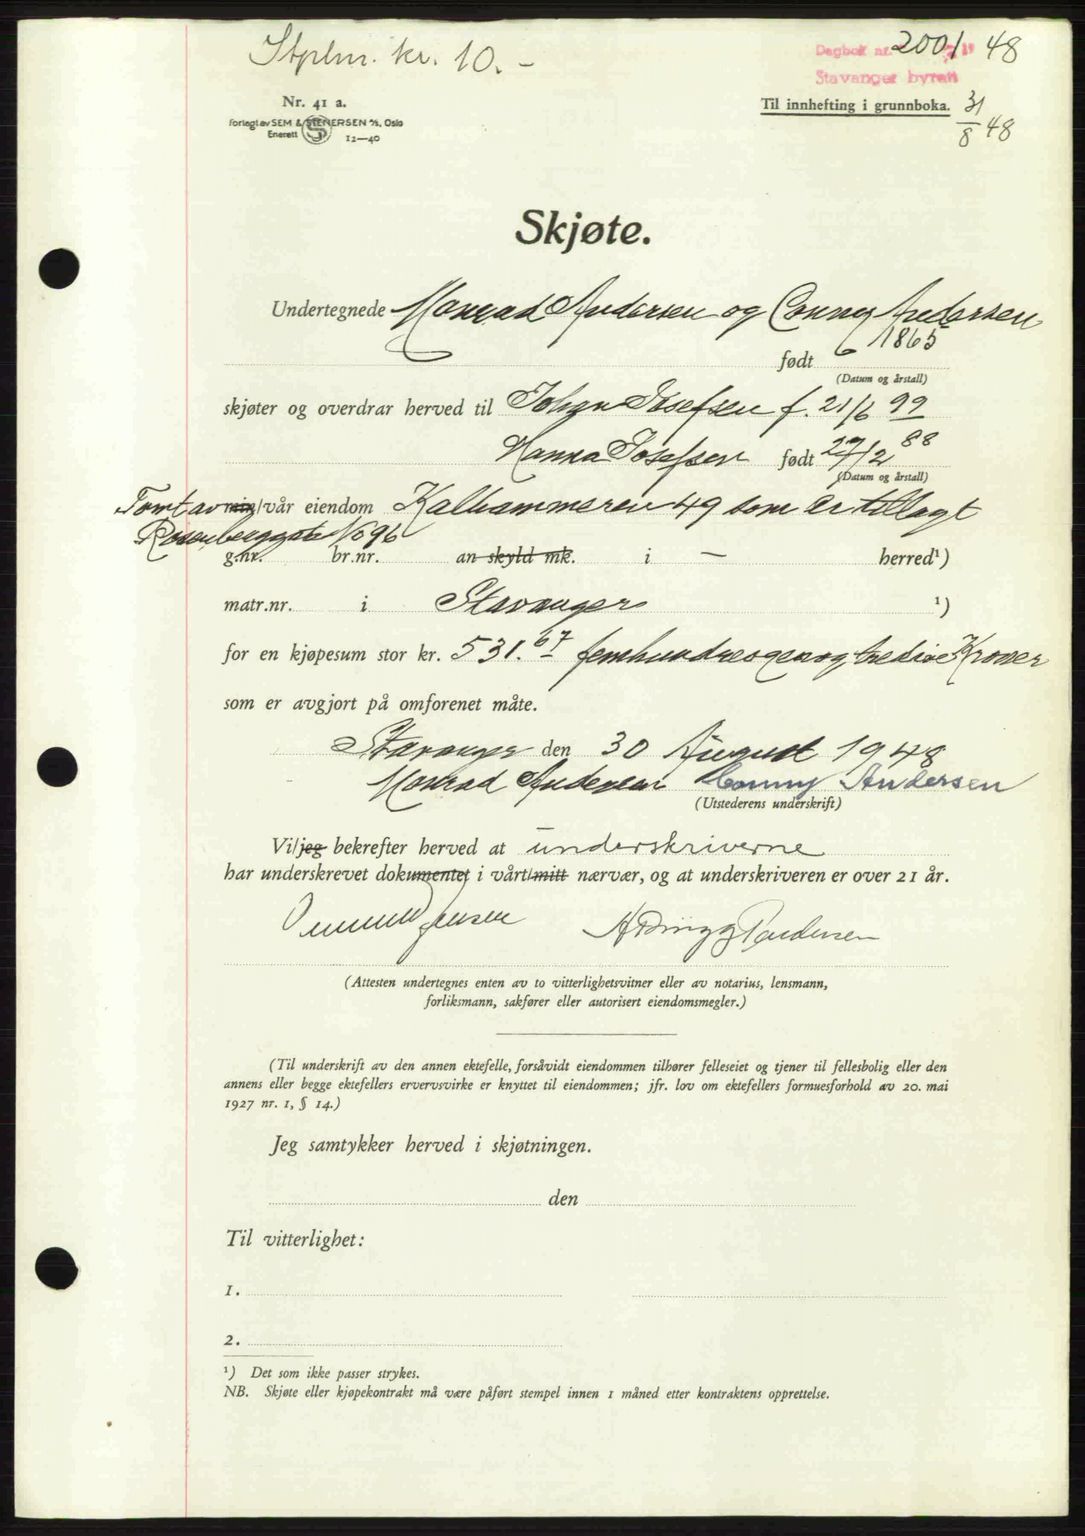 Stplm. kr. 10.-
Dagbok nr. 2001 1948
Stavanger byrett
Nr. 41 a.
Forlagt av SEM & STENERSEN A/S, Oslo
Enerett 12—40
Til innhefting i grunnboka. 31/8 48
Skjøte.
Undertegnede Monrad Andersen og Conny Andersen
født 1865
(Datum og årstall)
skjøter og overdrar herved til Johan Josefsen f. 21/6 99
Hanna Josefsen født 27/2 88
(Datum og årstall)
Tomt av min/vår eiendom Kalhammeren 49 som er tillagt
Rosenberggate No 96
g.nr. br.nr. an skyld mk. i — herred¹)
matr.nr. i Stavanger ¹)
for en kjøpesum stor kr. 531.67 femhundreogenogtredive Kroner
som er avgjort på omforenet måte.
Stavanger den 30 August 1948
Monrad Andersen Conny Andersen
(Utstederens underskrift)
Vi/jeg bekrefter herved at underskriverne
har underskrevet dokumentet i vårt/mitt nærvær, og at underskriveren er over 21 år.
Jensen
(Attesten undertegnes enten av to vitterlighetsvitner eller av notarius, lensmann,
forliksmann, sakfører eller autorisert eiendomsmegler.)
(Til underskrift av den annen ektefelle, forsåvidt eiendommen tilhører felleseiet og tjener til fellesbolig eller den
annens eller begge ektefellers ervervsvirke er knyttet til eiendommen; jfr. lov om ektefellers formuesforhold av 20. mai
1927 nr. 1, § 14.)
Jeg samtykker herved i skjøtningen.
den
Til vitterlighet:
1.
2.
¹) Det som ikke passer strykes.
NB. Skjøte eller kjøpekontrakt må være påført stempel innen 1 måned etter kontraktens opprettelse.